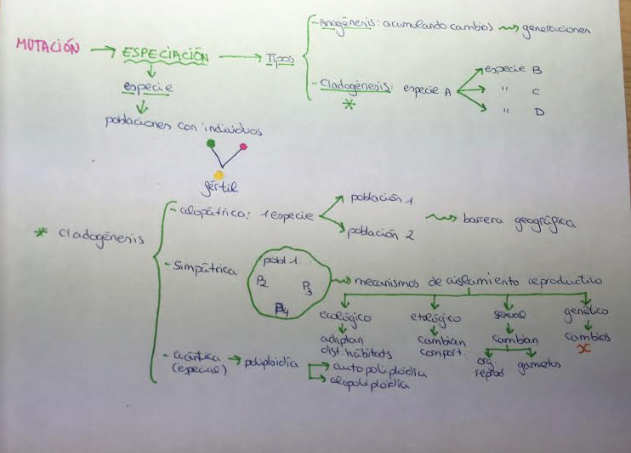 - Anagénesis: acumulando cambios ⇝ generaciones
MUTACIÓN → ESPECIACIÓN → Tipos
- Cladogénesis: especie A → especie B
" C
" D
*
especie
poblaciones con individuos
fértil
- alopátrica: 1 especie
población 1
población 2
⇝ barrera geográfica
* Cladogénesis
- Simpátrica
pobl 1
P2
P3
P4
⇝ mecanismos de aislamiento reproductivo
ecológico etológico sexual genético
adaptan cambian cambian cambios
dist. hábitats comport. X
org. reprod gametos
- cuántica → poliploidía
(especial)
autopoliploidía
alopoliploidía